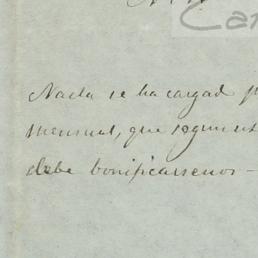 Car
Nada se ha cargad p
mensual, que segun es
debe bonificarsenos -